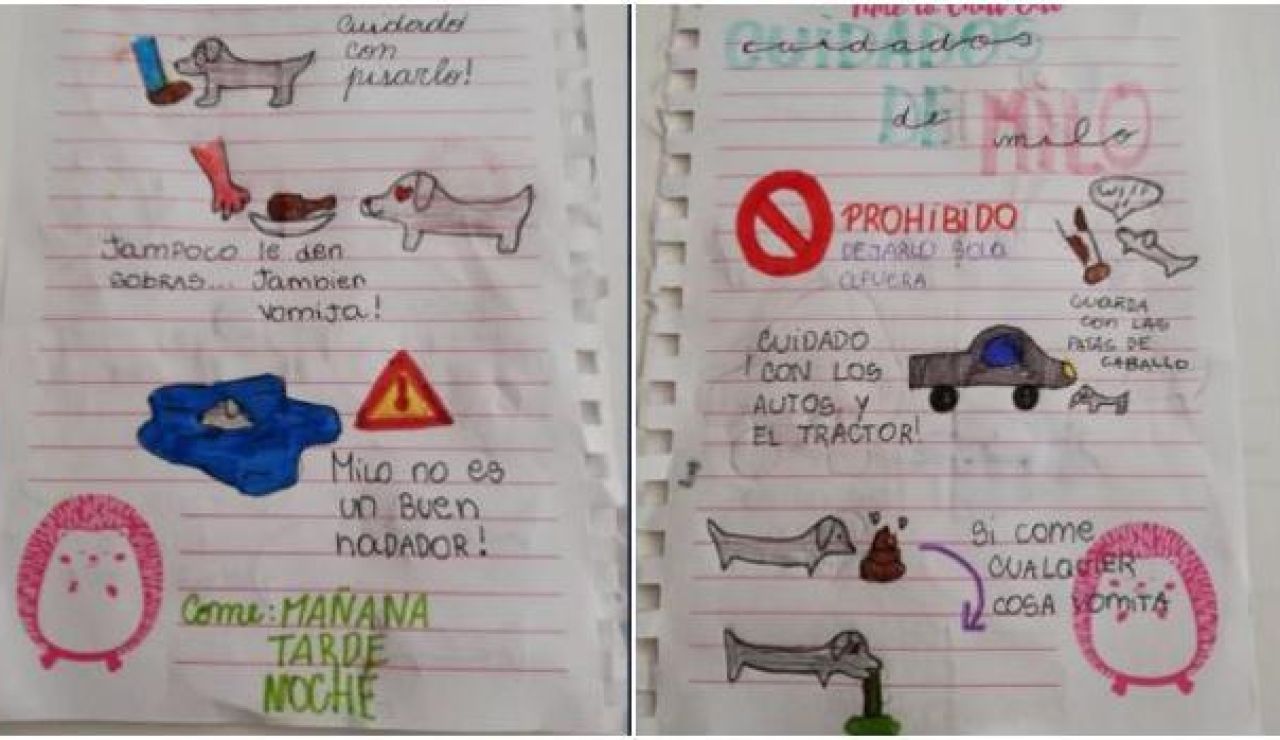 Cuidado
con
pisarlo!
TAMPOCO le den
SOBRAS... Tambien
vomita!
MILO no es
un Buen
nadador!
Come: MAÑANA
TARDE
NOCHE
CUIDADOS
cuidados
DE MILO
de milo
PROHIBIDO
DEJARLO SOLO
AFUERA
GUARDA
CON LAS
PATAS DE
CABALLO
CUIDADO
CON LOS
AUTOS Y
EL TRACTOR!
Si come
CUALQUIER
COSA VOMITA